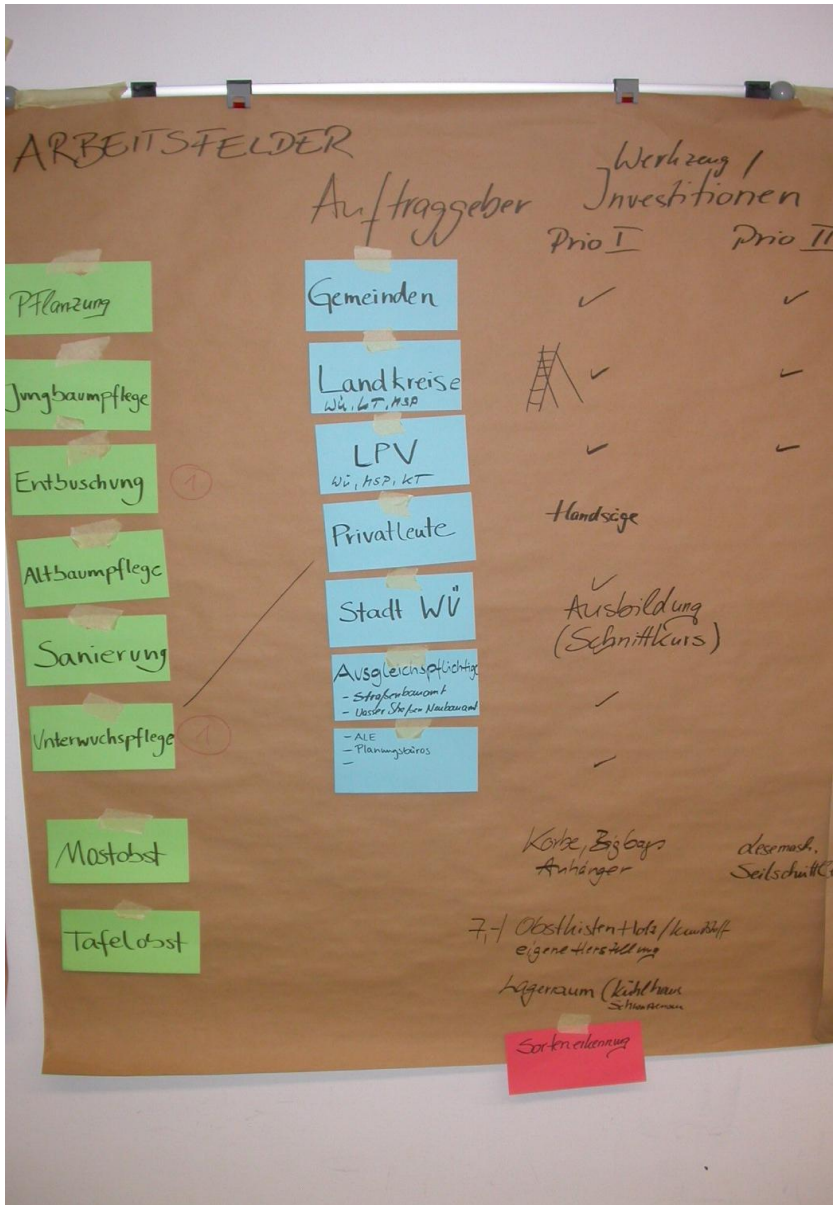 ARBEITSFELDER
Auftraggeber
Werkzeug /
Investitionen
Prio I
Prio II
Pflanzung
Jungbaumpflege
Entbuschung
1
Altbaumpflege
Sanierung
Unterwuchspflege
1
Mostobst
Tafelobst
Gemeinden
Landkreise
Wü, KT, MSP
LPV
Wü, MSP, KT
Privatleute
Stadt WÜ
Ausgleichspflichtige
- Straßenbauamt
- Wasser Straßen Neubauamt
- ALE
- Planungsbüros
-
✓
✓
✓
✓
✓
✓
Handsäge
✓
Ausbildung
(Schnittkurs)
✓
✓
Körbe, Bigbags
Anhänger
Lesemasch.
7,-/ Obstkisten Holz/Kunststoff
eigene Herstellung
Lagerraum (Kühlhaus
Sortenerkennung